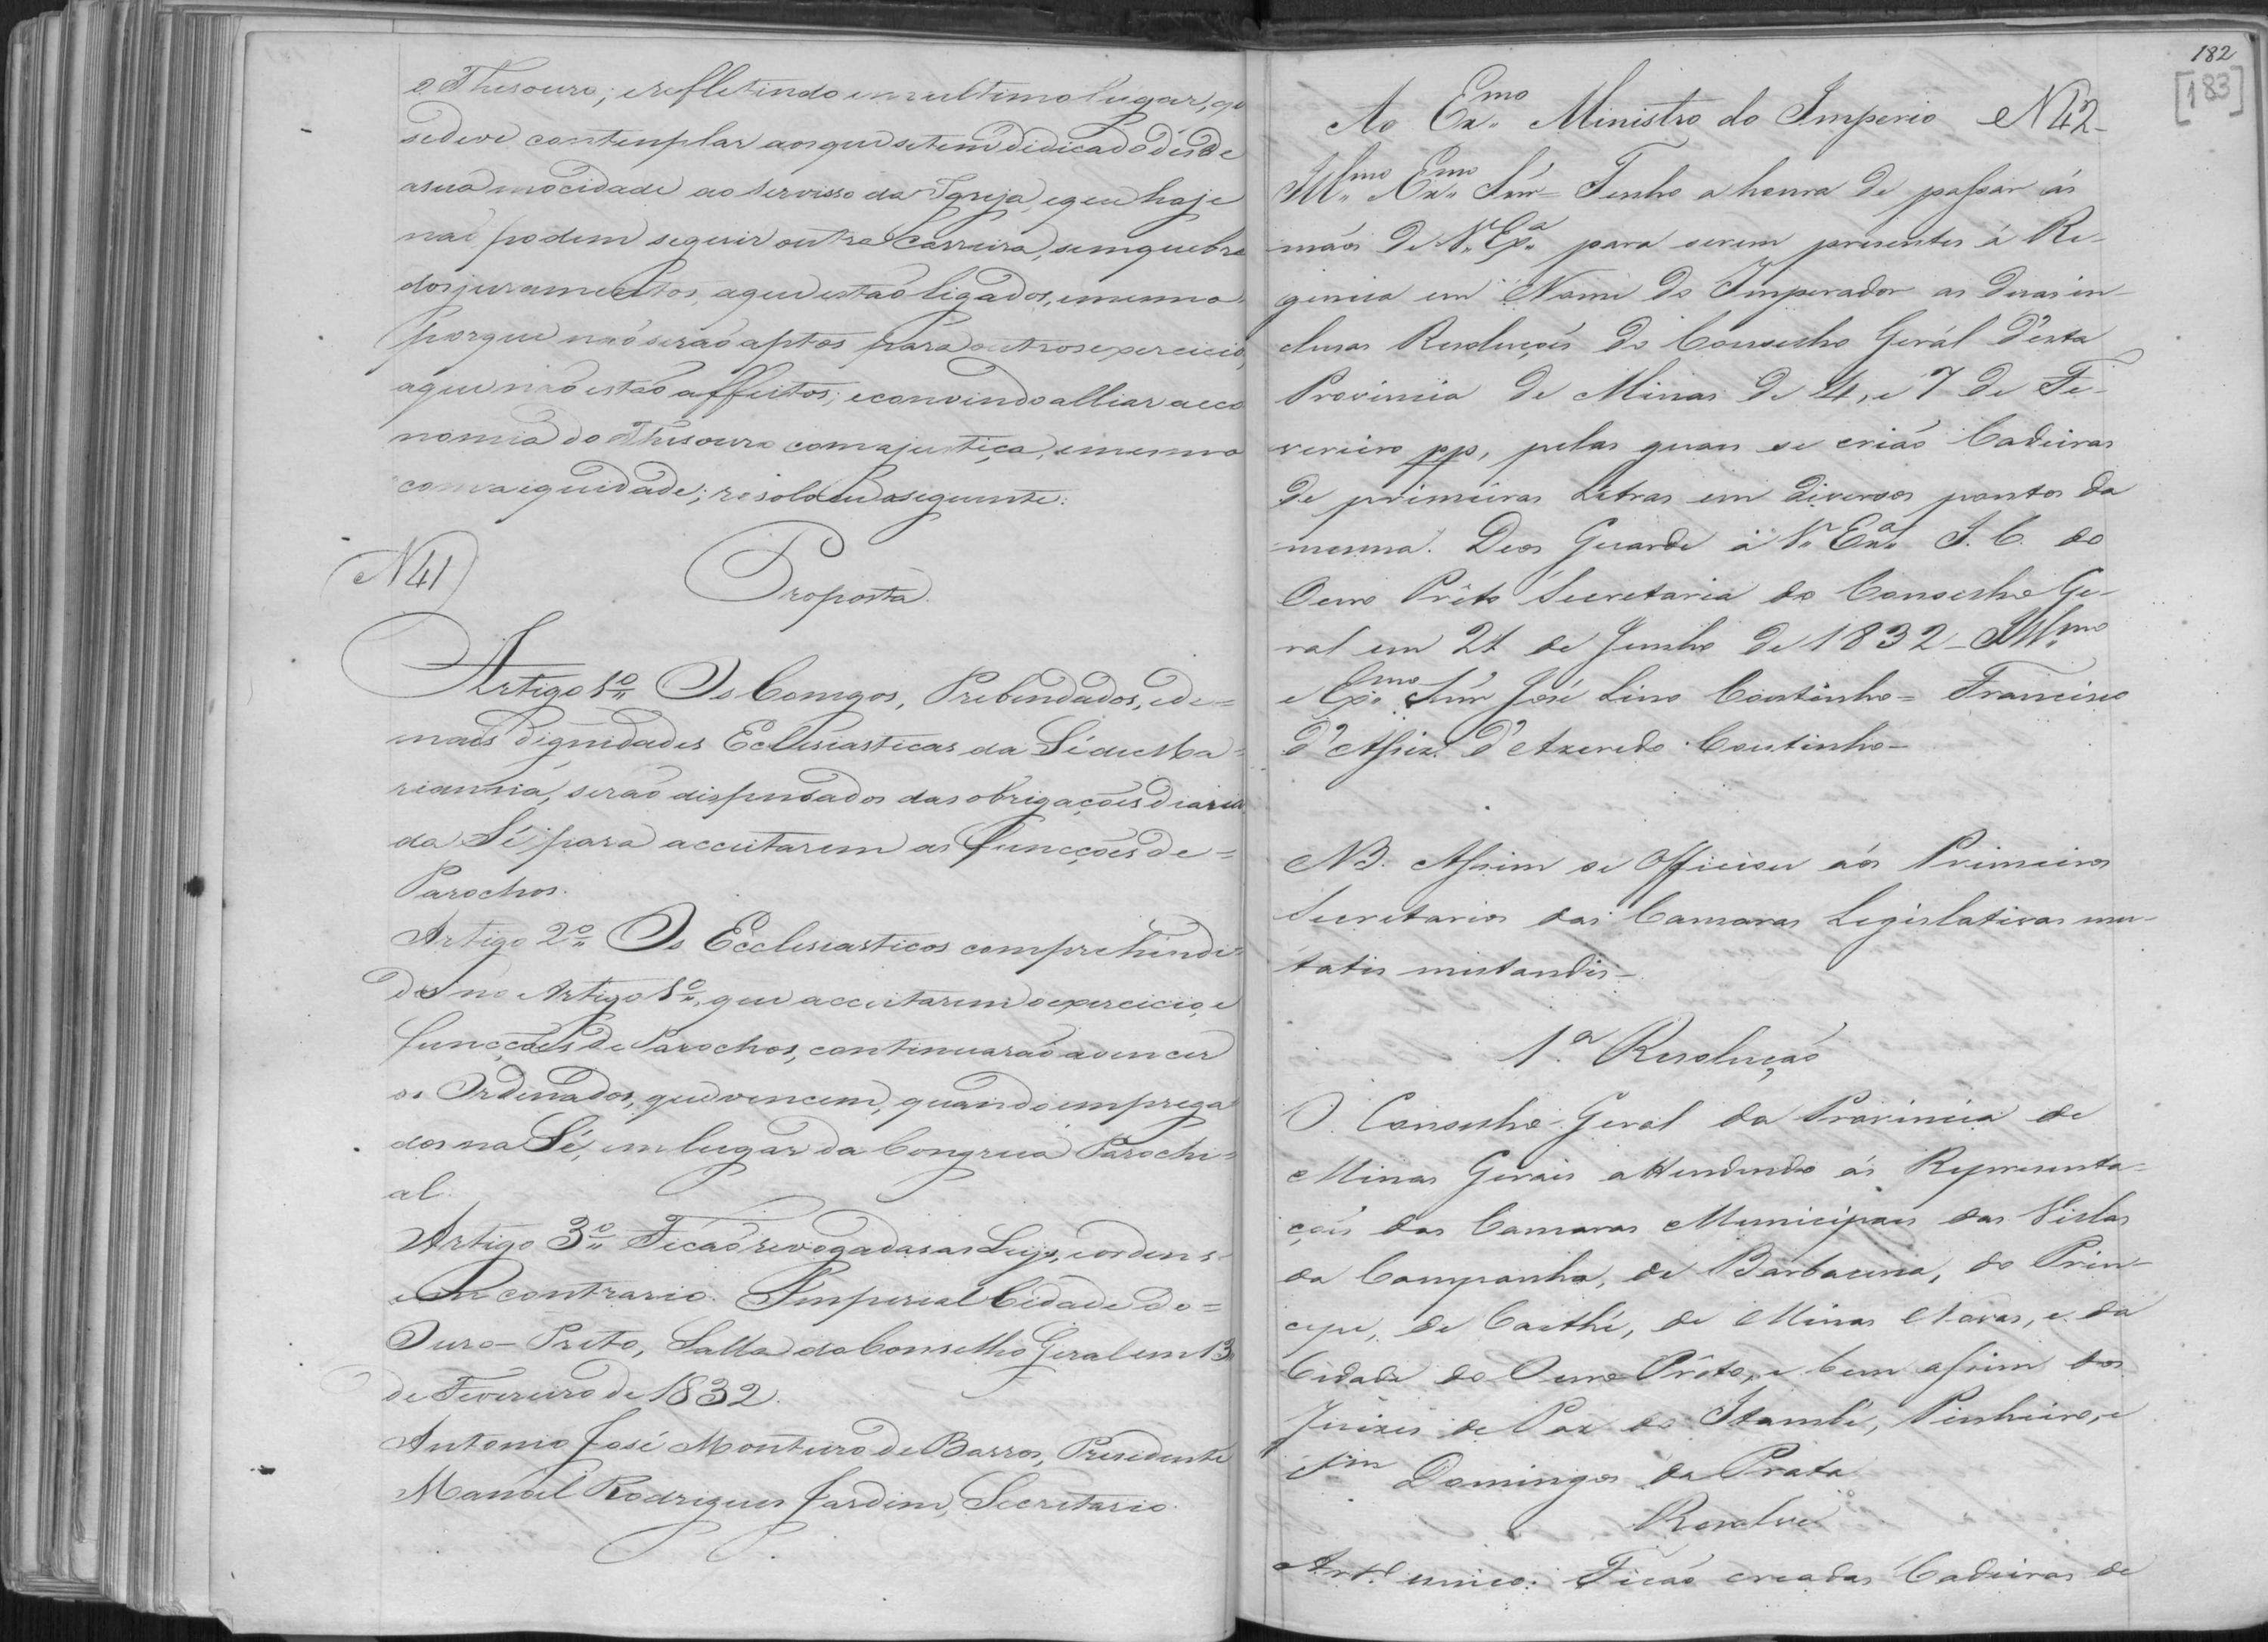 o Thesouro; e refletindo em ultimo lugar, qe
se deve contemplar aos que se tem didicado desde
a sua mocidade ao servisso da Igreja, e que hoje
naõ podem seguir outra Carreira, sem quebra
dos juramentos, a que estaõ ligados, e mesmo
porque naõ seraõ aptos para outros exercicios,
a que naõ estaõ affeitos; e convindo alliar a eco
nomia do Thesouro com a justiça, e mesmo
com a equidade; resolveu a seguinte:
N 41
Proposta.
Artigo 1º Os Conegos, Prebendados, e de=
mais Dignidades Ecclesiasticas da Sé de Ma=
rianna, seraõ dispensados das obrigações diarias
da Sé, para acceitarem as funcções de=
Parochos.
Artigo 2º Os Ecclesiasticos comprehendi=
dos no Artigo 1º, que acceitarem o exercicio, e
funcções de Parochos, continuaraõ a vencer
os Ordenados, que vencem, quando emprega
dos na Sé, em lugar da Congrua Parochi=
al.
Artigo 3º Ficaõ revogadas as Leys, e ordens
em contrario. Imperial Cidade do=
Ouro-Preto, Salla do Conselho Geral em 13
de Fevereiro de 1832.
Antonio José Monteiro de Barros, Presidente
Manoel Rodrigues Jardim, Secretario.
182
[183]
Ao Exmo Ministro do Imperio N 42
Illmo Exmo Snr= Tenho a honra de passar ás
mãos de V. Exa para serem presentes á Re-
gencia em Nome do Imperador as duas in-
clusas Resoluções do Conselho Gerál d'esta
Provincia de Minas de 4, e 7 de Fe-
vereiro pp, pelas quaes se criaõ Cadeiras
de primeiras Letras em diversos pontos da
mesma. Deos Guarde á V. Exa I. C. do
Ouro Prêto Secretaria do Conselho Ge-
ral em 21 de Junho de 1832 - Illmo
e Exmo Snr José Lino Coutinho = Francisco
d'Assiz d'Azeredo Coutinho-
NB. Assim se Officiou aós Primeiros
Secretarios das Camaras Legislativas mu-
tatis mutandis-
1.ª Resoluçaõ
O Conselho Geral da Provincia de
Minas Geraes attendendo ás Representa-
ções das Camaras Municipaes das Villas
da Campanha, de Barbacena, do Prin-
cipe, de Caethé, de Minas Novas, e da
Cidade do Ouro Prêto, e bem assim dos
Juizes de Paz do Itambé, Pinheiro, e
Domingos da Prata
Resolve
Art.º unico: Ficaõ creadas Cadeiras de